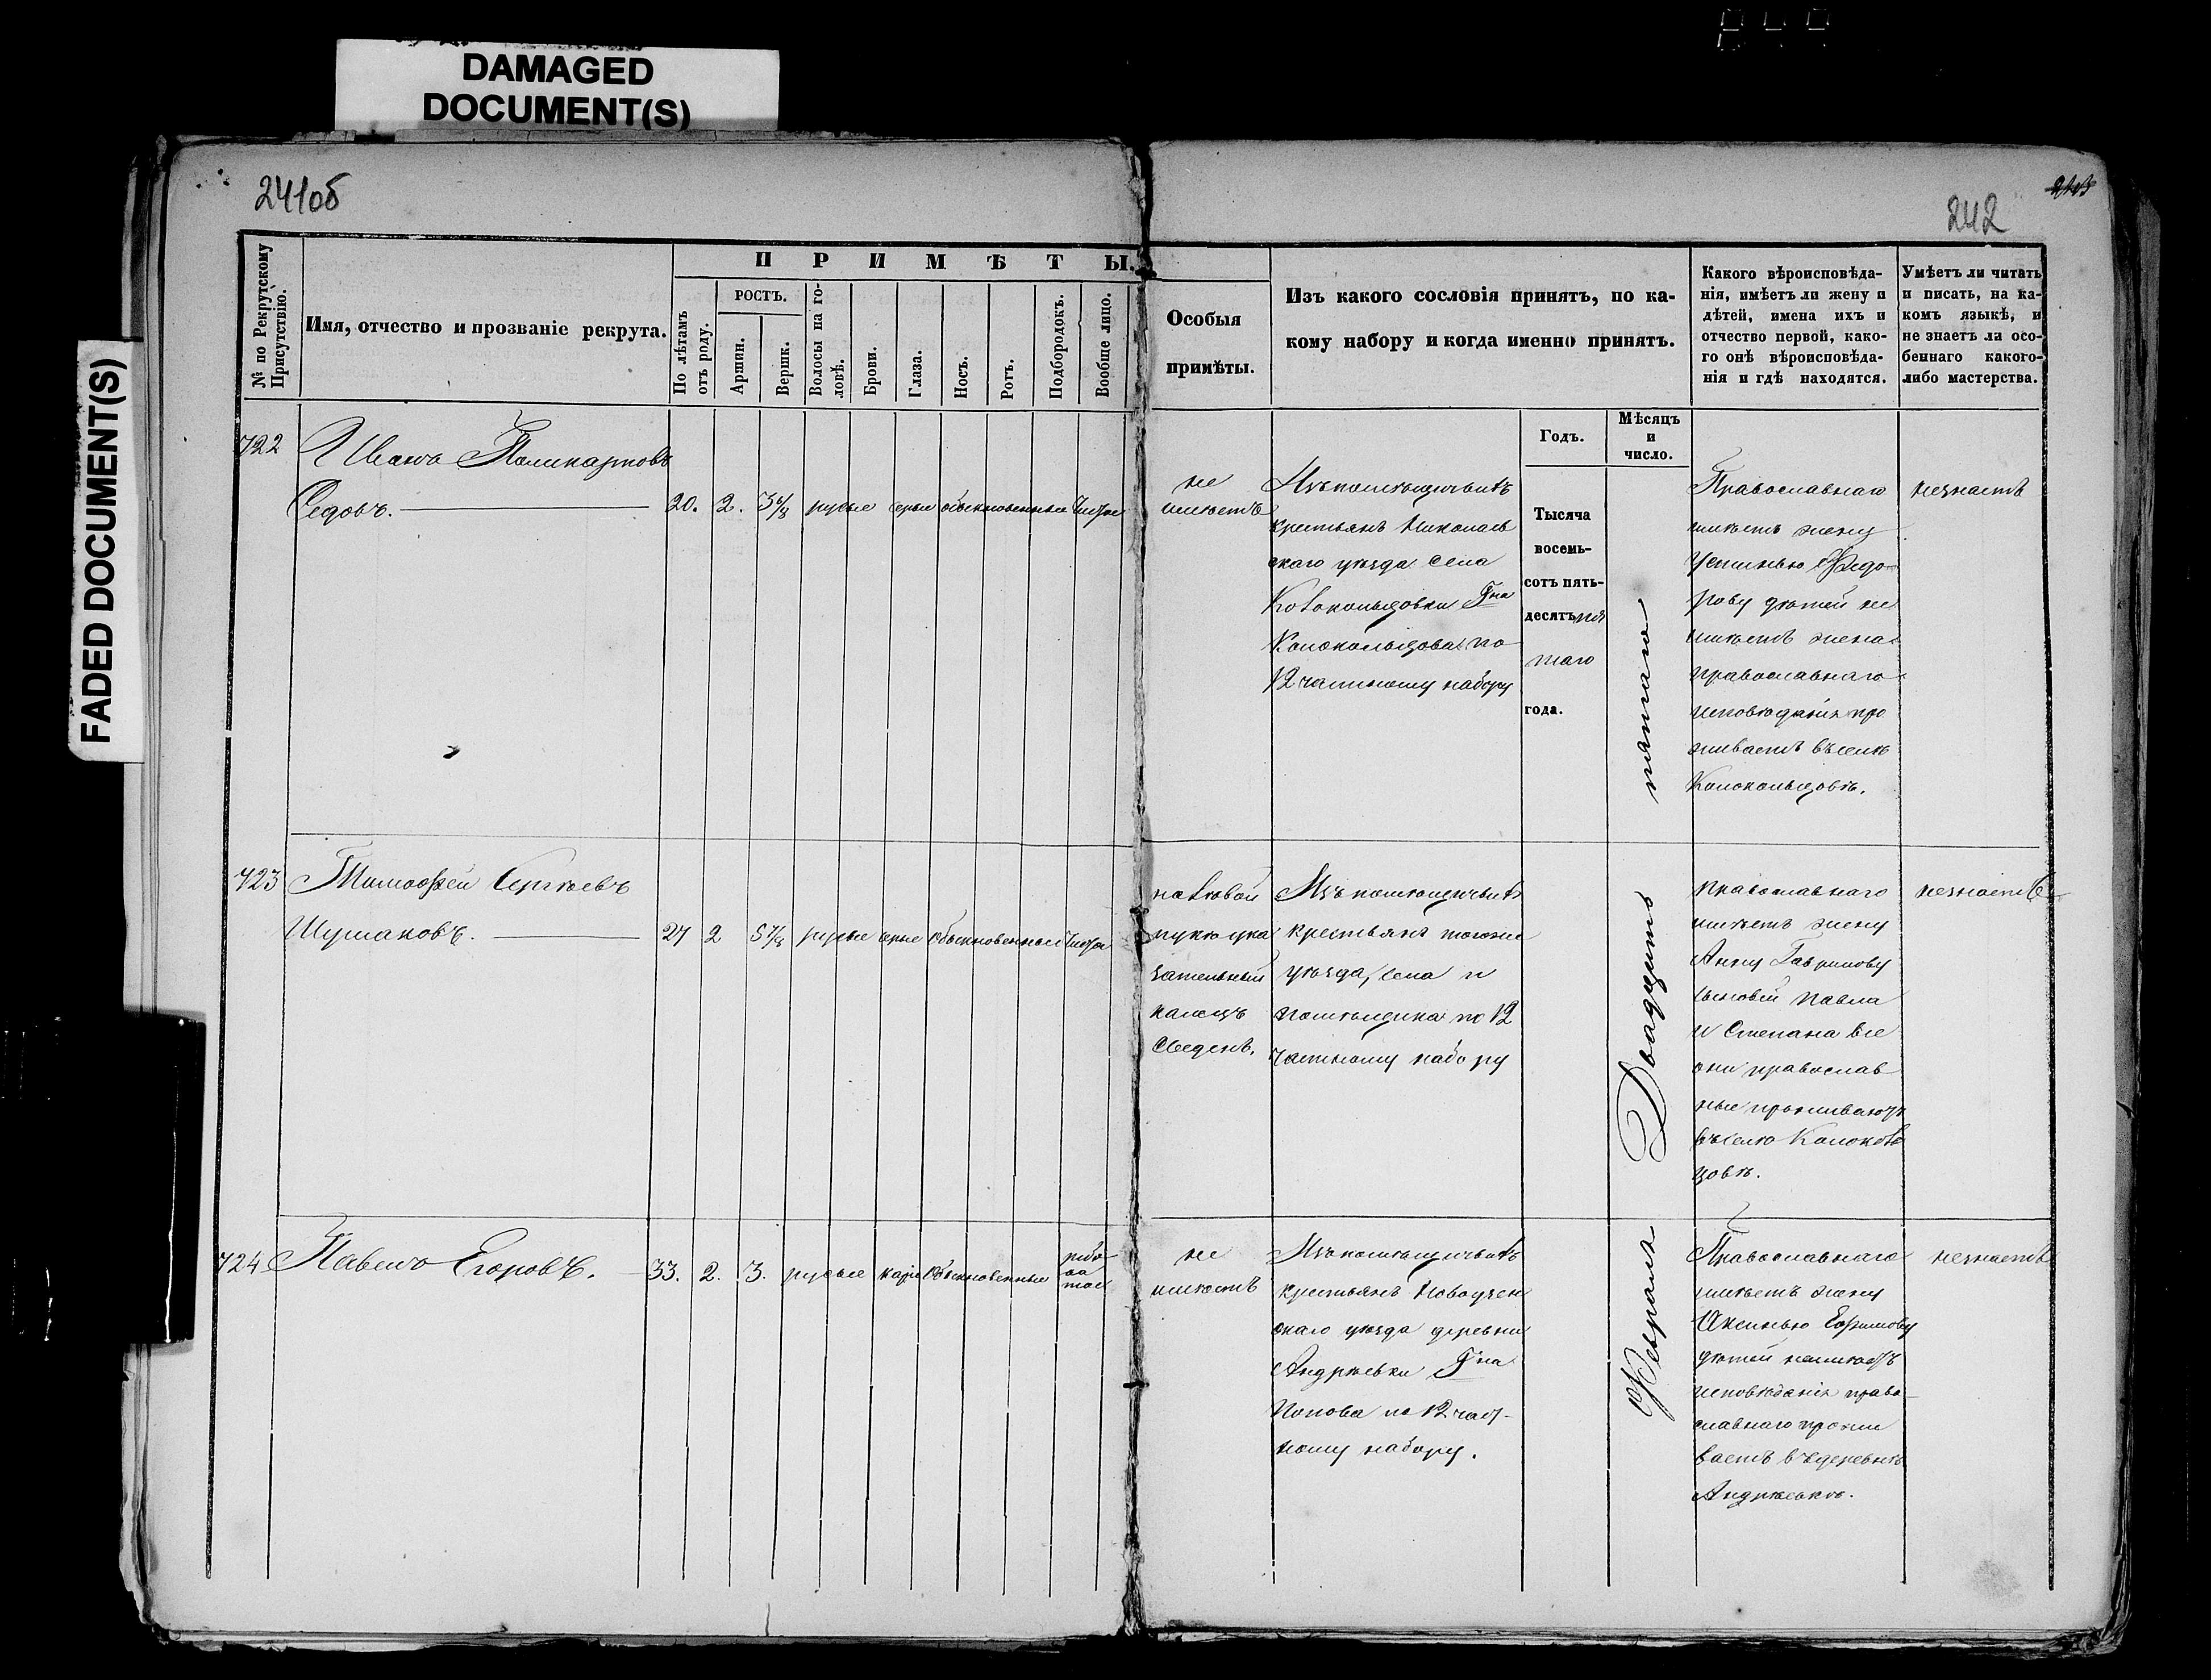 DAMAGED
DOCUMENT(S)
FADED DOCUMENT(S)
241об
242
№ по Рекрутскому Присутствію.
Имя, отчество и прозваніе рекрута.
ПРИМѢТЫ.
По лѣтамъ отъ роду.
РОСТЪ.
Аршин.
Вершк.
Волосы на головѣ.
Брови.
Глаза.
Носъ.
Ротъ.
Подбородокъ.
Вообще лицо.
Особыя
примѣты.
Изъ какого сословія принятъ, по ка-
кому набору и когда именно принятъ.
Какого вѣроисповѣда-
нія, имѣетъ ли жену и
дѣтей, имена ихъ и
отчество первой, како-
го онѣ вѣроисповѣда-
нія и гдѣ находятся.
Умѣетъ ли читать
и писать, на ка-
комъ языкѣ, и
не знаетъ ли осо-
беннаго какого-
либо мастерства.
Годъ.
Мѣсяцъ
и
число.
722
Иванъ Поликарповъ
Седовъ.
20. 2. 3 6/8 русые серые обыкновенные чистое
не
имѣетъ
Изъ помѣщичьихъ
крестьянъ Николаев
скаго уѣзда села
Колокольцовки Гна
Колокольцова по
12 частному набору
Тысяча
восемь-
сотъ пять-
десятъ пя
таго
года.
Православнаго
имѣетъ жену
Устинью Федо-
рову дѣтей не
имѣетъ жена
православнаго
исповѣданія про
живаетъ въ селѣ
Колокольцовѣ.
незнаетъ
723
Тимофей Сергѣевъ
Шушаковъ.
27 2 5 7/8 русые серые обыкновенные чистое
на лѣвой
рукѣ ука
зательный
палецъ
сведенъ.
Изъ помѣщичьихъ
крестьянъ тогоже
уѣзда, села и
помѣщика по 12
частному набору
православнаго
имѣетъ жену
Анну Гаврилову
сыновей Павла
и Степана все
они православ
ные проживаютъ
въ селѣ Колоколь
цовѣ.
незнаетъ
724
Павелъ Егоровъ.
33. 2. 3. русые каріе обыкновенные рябо-
ва
тое
не
имѣетъ
Изъ помѣщичьихъ
крестьянъ Новоузен
скаго уѣзда деревни
Андрѣевки Гна
Попова по 12 част-
ному набору.
Православнаго
имѣетъ жену
Аксинью Ефимову
дѣтей неимѣетъ
исповѣданія право-
славнаго прожи
ваетъ въ деревнѣ
Андрѣевкѣ.
незнаетъ
Февраля Двадцать пятаго